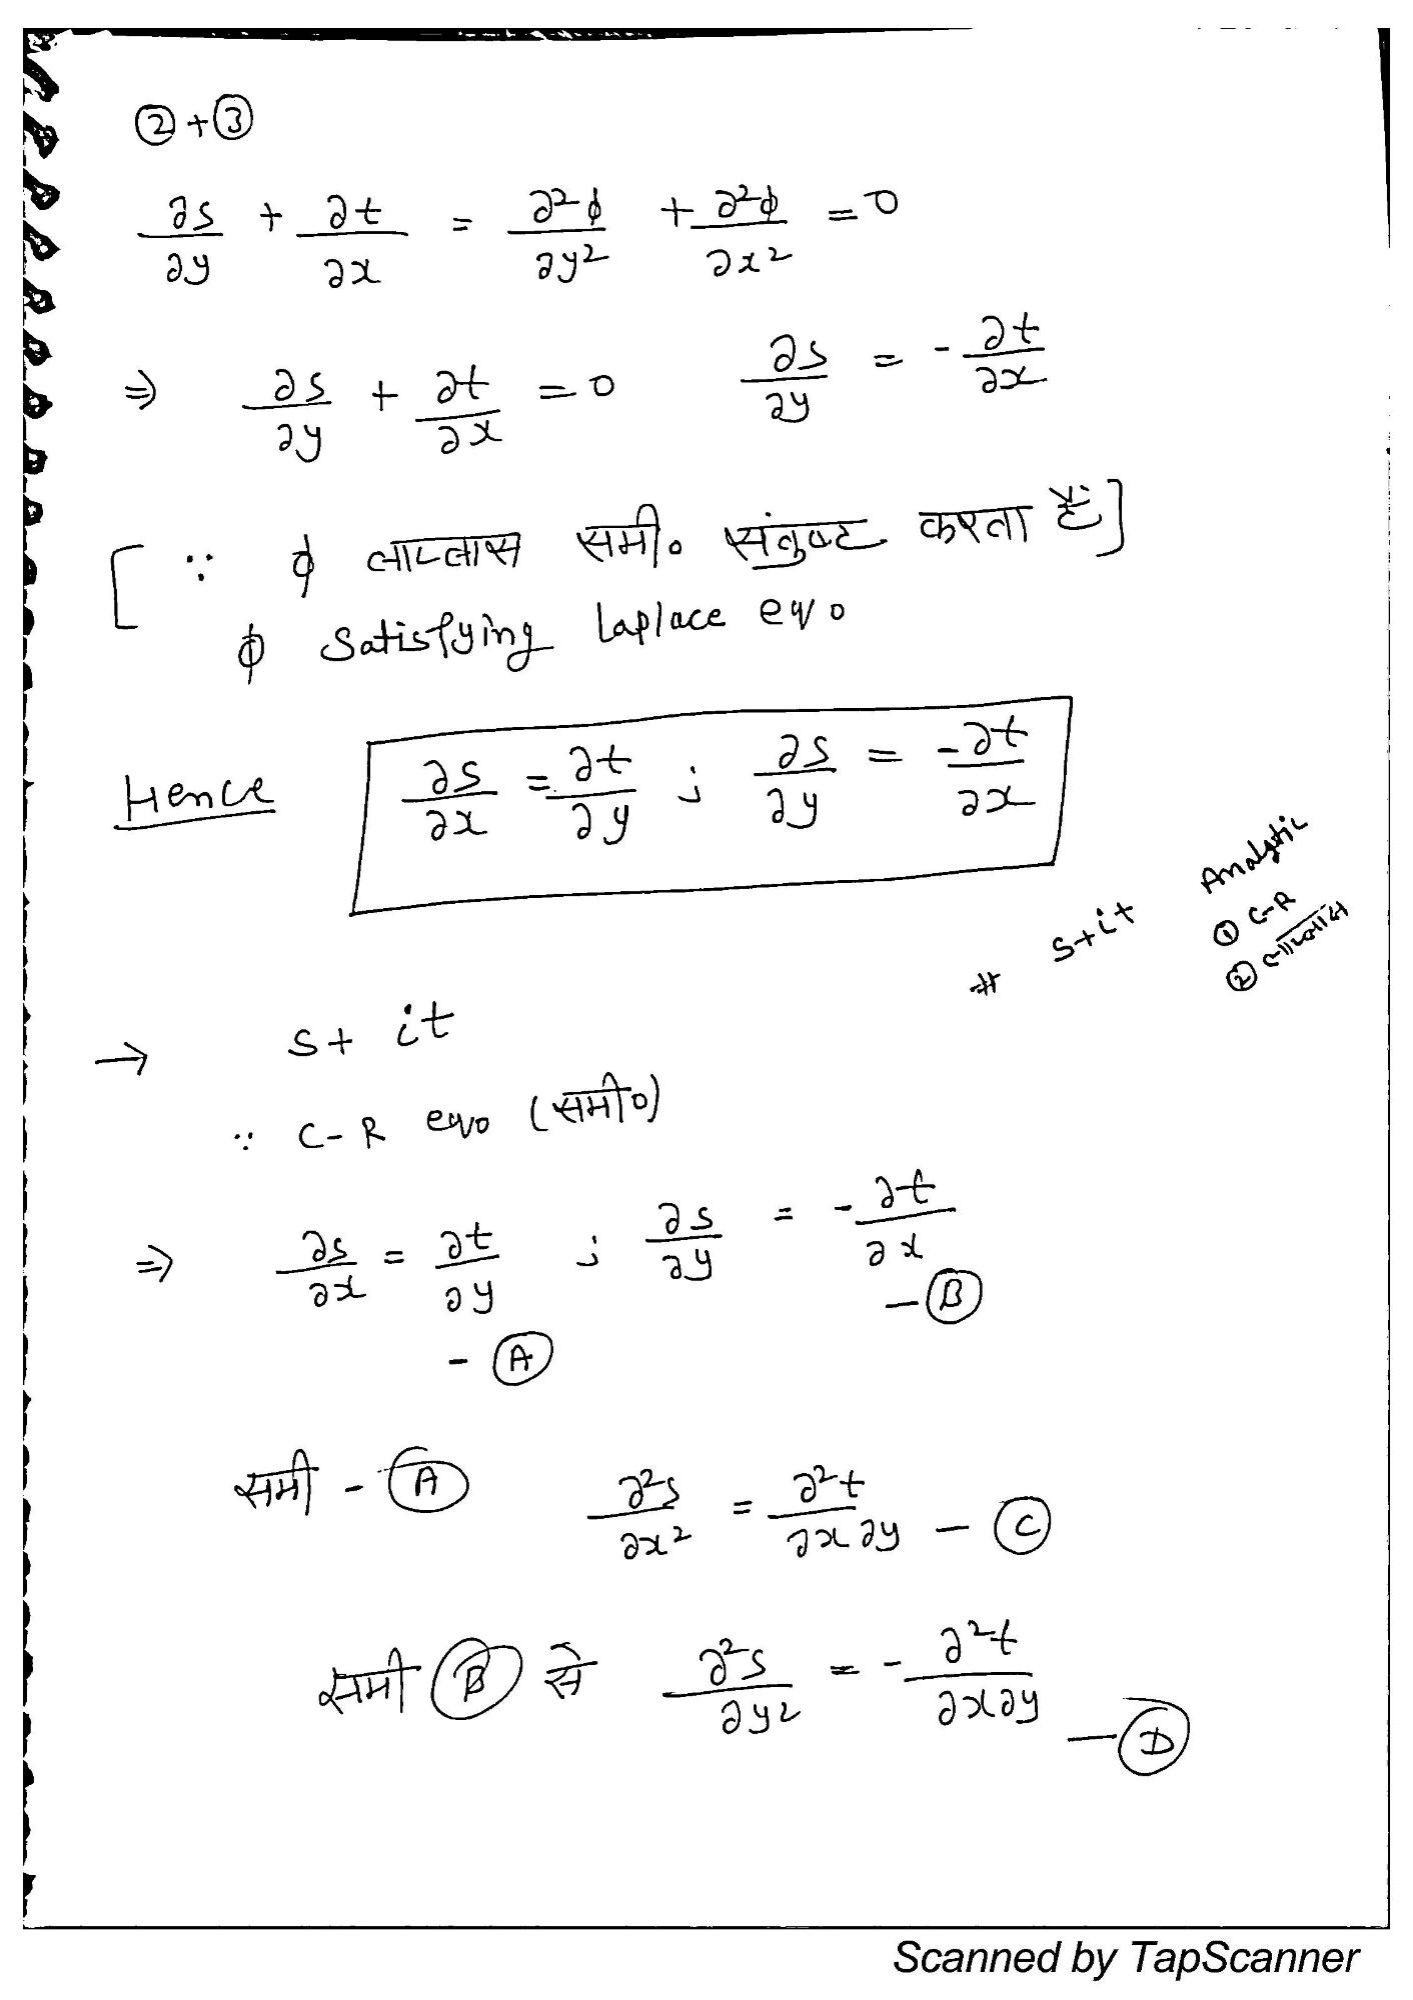 ② + ③
∂s/∂y + ∂t/∂x = ∂²ϕ/∂y² + ∂²ϕ/∂x² = 0
⇒ ∂s/∂y + ∂t/∂x = 0 ∂s/∂y = -∂t/∂x
[∵ ϕ लाप्लास समी० संतुष्ट करता हैं]
ϕ Satisfying Laplace eqn
Hence ∂s/∂x = ∂t/∂y ; ∂s/∂y = -∂t/∂x
# s+it
Analytic
① C-R
② लाप्लास
→ s + it
∵ C-R eqn (समी०)
⇒ ∂s/∂x = ∂t/∂y ; ∂s/∂y = -∂t/∂x
- Ⓐ — Ⓑ
समी - Ⓐ ∂²s/∂x² = ∂²t/∂x∂y — Ⓒ
समी Ⓑ से ∂²s/∂y² = -∂²t/∂x∂y — Ⓓ
Scanned by TapScanner